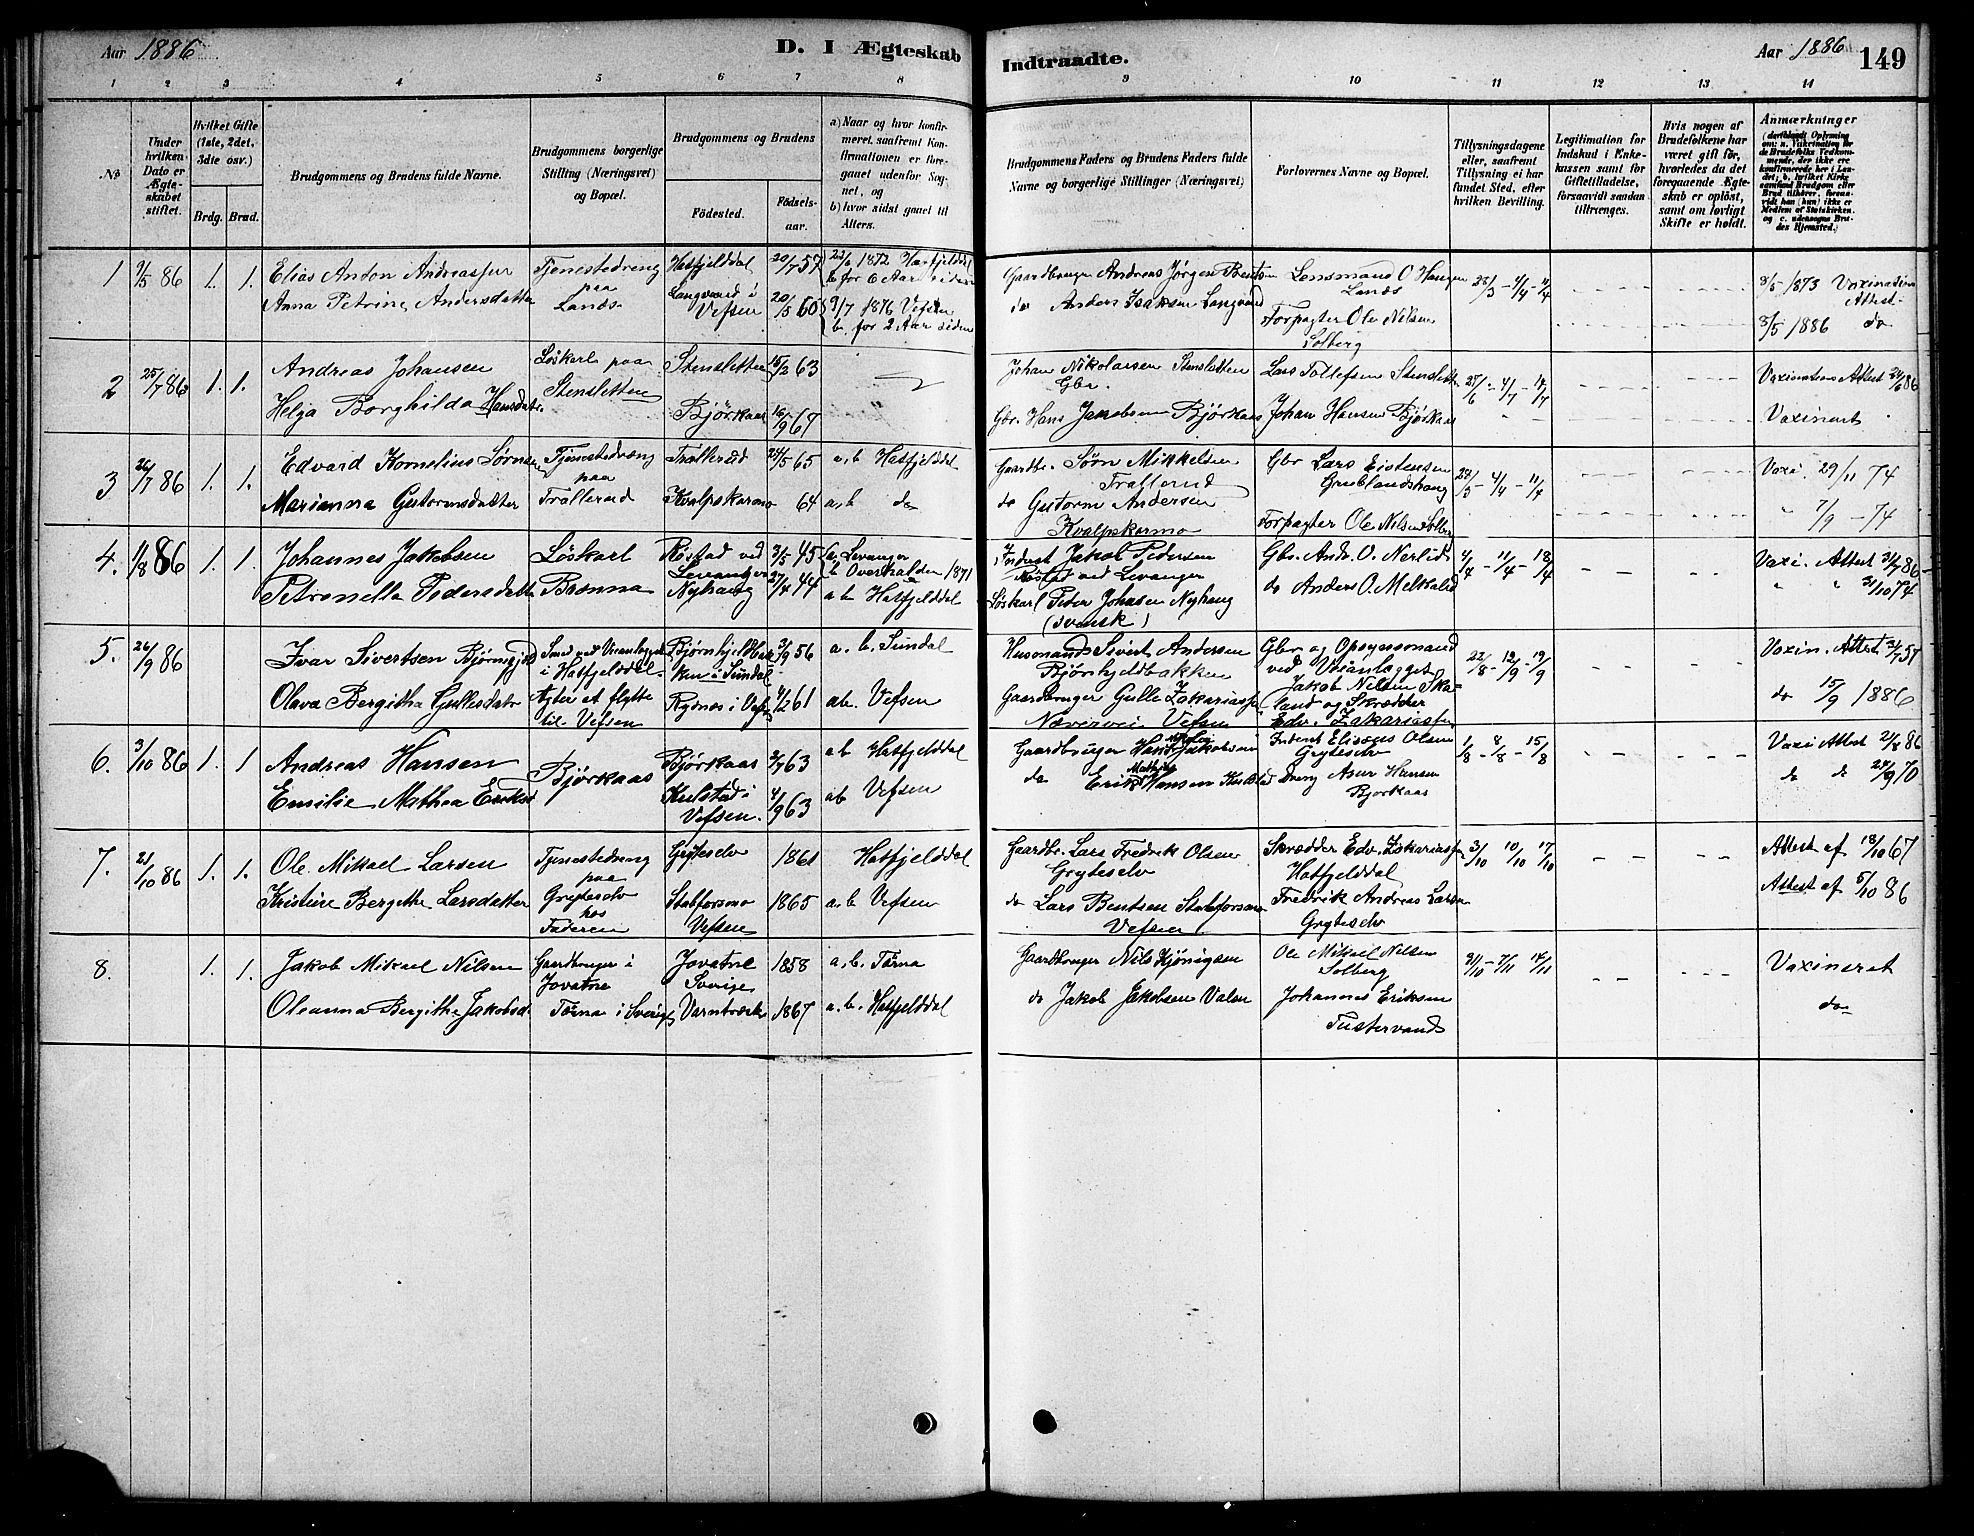 Aar 1886
D. I Ægteskab
Indtraadte.
Aar 1886
149
1 2 3 4 5 6 7 8 9 10 11 12 13 14
No
Under hvilken Dato er Ægteskabet stiftet.
Hvilket Gifte (1ste, 2det, 3die osv.)
Brdg. Brud.
Brudgommens og Brudens fulde Navne.
Brudgommens borgerlige Stilling (Næringsvei) og Bopæl.
Brudgommens og Brudens
Fødested.
Fødselsaar.
a) Naar og hvor konfirmeret, saafremt Konfirmationen er foregaaet udenfor Sognet, og
b) hvor sidst gaaet til Alters.
Brudgommens Faders og Brudens Faders fulde Navne og borgerlige Stillinger (Næringsvei)
Forlovernes Navne og Bopæl.
Tillysningsdagene eller, saafremt Tillysning ei har fundet Sted, efter hvilken Bevilling.
Legitimation for Indskud i Enkekassen samt for Giftetilladelse, forsaavidt saadan tiltrænges.
Hvis nogen af Brudefolkene har været gift før, hvorledes da det foregaaende Ægteskab er opløst, samt om lovligt Skifte er holdt.
Anmærkninger
1 9/5 86 1. 1. Elias Anton Andreassen Tjenestedreng paa Lands- Hatfjelddal 20/7 57 22/6 1872 Hatfjelddal b for 6 Aar siden
Anna Petrine Andersdatter Langvand i Vefsen 20/5 60 9/7 1876 Vefsen b. for 2 Aar siden
Gaardbruger Andreas Jørgen Bentsen Lensmand O Hangen Lenæs 28/3 - 4/4 - 11/4 8/5 - 1873 Vaxination Attest
do Anders Isaksen Langvand Forpagter Ole Nilsen Solberg 3/5 1886 do
2 25/7 86 1. 1. Andreas Johansen Løskarl paa Stensletten Stensletten 15/2 63
Helga Borghilda Hansdatr. Bjørkaas 16/9 67
Johan Nikolaisen Stensletten Gbr. Lars Tollefsen Stenslett 27/6 - 4/7 - 11/7 Vaxinations Attest 24/6 86
Gbr. Hans Jakobsen Bjørkaas Johan Hansen Bjørkaas Vaxineret
3 26/7 86 1. 1. Edvard Kornelius Sørnsen Tjenestedreng paa Trallerud Trallerud 24/5 65 a, b Hatfjelddal
Marianna Gutormsdatter Kvalpskarmo 64 a, b do
Gaardbr. Søn Mikkelsen Trallerud Gbr Lars Eistensen Grublandshaug 28/3 - 4/4 - 11/4 Vaxi. 29/11 74
do Gutorm Andersen Kvalpskarmo Forpagter Ole Nilsen Solberg " 7/9 - 74
4. 11/8 86 1. 1. Johannes Jakobsen Løskarl Brænna Røstad ved Levanger 3/5 45 a, Levanger b Overhalden 1871
Petronella Pedersdatt Nyhaug 27/4 44 a b Hatfjelddal
Inderst Jakob Pedersen Røstad ved Levanger Gbr. Andr. O. Nerlid 4/4 - 11/4 - 18/4 Vaxi. Attest 31/7 86
Løskarl Peder Johnsen Nyhaug (svensk) do Anders O. Melkalid " " 31/10 74
5. 26/9 86 Ivar Sivertsen Bjørnhjeld Smed ved Veianlægget i Hatfjelddal. Agter at flytte til Vefsen Bjørnhjeldbakken i Sundal 3/9 56 a. b. Sundal
Olava Bergitha Gullesdatr Rynæs i Vefsn 4/2 61 ab. Vefsen
Husmand Sivert Andersen Bjørnhjeldbakken Gbr og Opsynsmand ved Veianlægget Jakob Nilsen Skaland og Skrædder Edv. Zakariassen 22/8 - 12/9 - 19/9 Vaxin. Attest 21/7 57
Gaardbruger Gulle Zakariassen Nævervei Vefsen do 15/9 1886
6. 3/10 86 1. 1 Andreas Hansen Bjørkaas Bjørkaas 2/7 63 a b Hatfjelddal
Emilie Mathea Eriksd Kulstad i Vefsen. 4/9 63 ab Vefsen
Gaardbruger Hans Jakobsen Inderst Elisæus Olsen Gryteselv 1/8 - 8/8 - 15/8 Vaxi Attest 2/8 86
do Erik Hansen Kulstad Dreng Asur Hansen Bjørkaas do do 28/9 70
7. 21/10 86 1. 1. Ole Mikael Larsen Tjenestedreng paa Gryteselv hos Faderen Gryteselv 1861 Hatfjelddal
Kristine Bergithe Larsdatter Stabforsmo Vefsen 1865 a, b Vefsen
Gaardbr. Lars Fredrik Olsen Gryteselv Skrædder Edv. Zakariassen Hatfjelddal 3/10 10/10 17/10 Attest af 18/10 67
do Lars Bentsen Stabforsmo Vefsen Fredrik Andreas Larsen Gryteselv Attest af 5/10 86
8. 1. 1. Jakob Mikael Nilsen Gaardbruger i Jovatne Tærna i Sverige Jovatne Sverige 1858 a, b. Tärna
Oleanna Bergithe Jakobsd. Varntræsk 1867 a. b. Hatfjelddal
Gaardbruger Nils Kjønigsen Ole Mikael Nilsen Solberg 31/10 - 7/11 14/11 Vaxineret
do Jakob Jakobsen Valen Johannes Eriksen Tustervand do